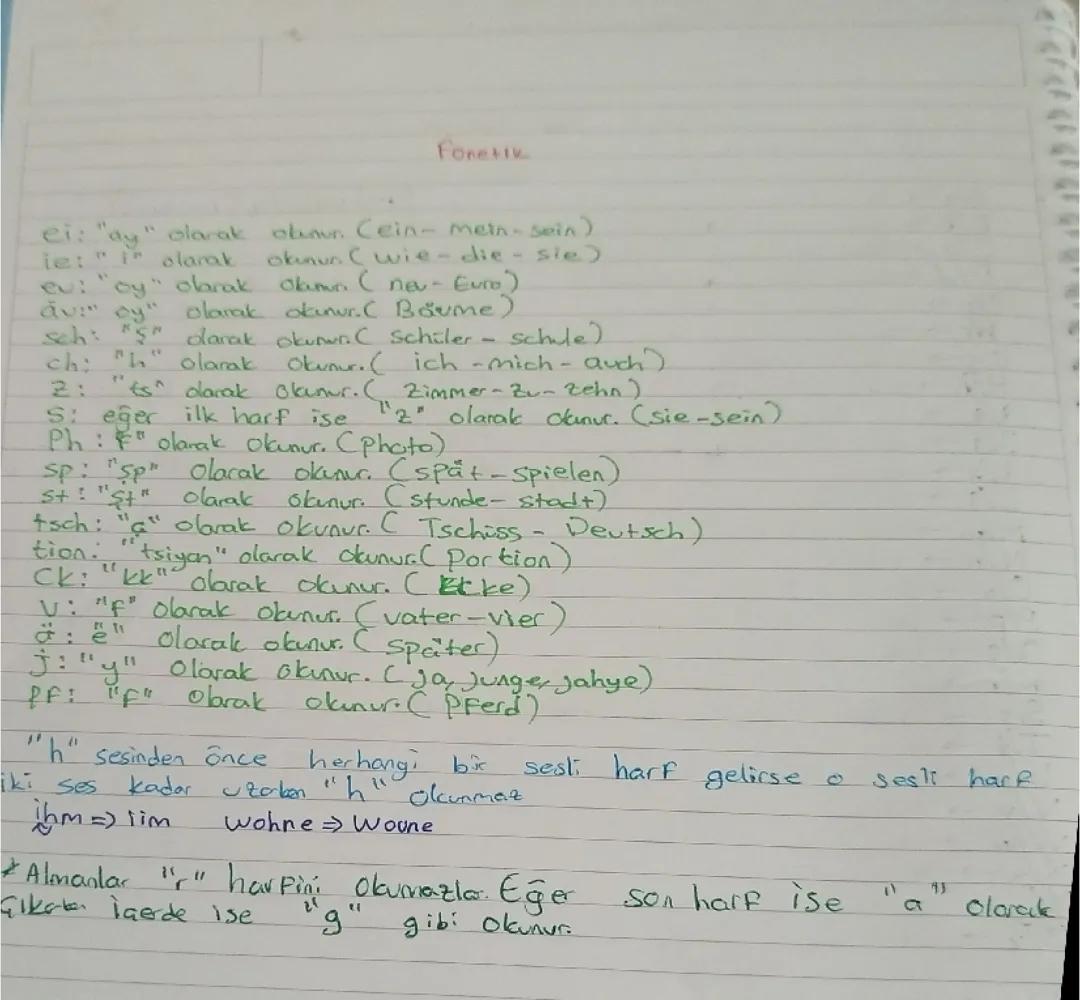 Fonetik
ei: "ay" olarak okunur. (ein - mein - sein)
ie: "i" olarak okunur. (wie - die - sie)
eu: "oy" olarak okunur. ( neu - Euro)
äu: "oy" olarak okunur. ( Bäume)
sch: "ş" olarak okunur. ( schüler - schule)
ch: "h" olarak okunur. ( ich - mich - auch)
z: "ts" olarak okunur. ( Zimmer - Zu - zehn)
S: eğer ilk harf ise "z" olarak okunur. (sie - sein)
Ph : F" olarak okunur. (Photo)
sp: "şp" olarak okunur. (spät - spielen)
st : "şt" olarak okunur. (stunde - stadt)
tsch: "ç" olarak okunur. ( Tschüss - Deutsch)
tion: "tsiyon" olarak okunur. ( Portion)
Ck: "kk" olarak okunur. ( Ecke)
V: "F" olarak okunur. (vater - vier)
ä: ë" olarak okunur. ( später)
j: "y" olarak okunur. ( ja, junge, jahye)
PF: "F" olarak okunur. ( PFerd)
"h" sesinden önce herhangi bir sesli harf gelirse o sesli harf
iki ses kadar uzarken "h" okunmaz
ihm => iim wohne => Woone
* Almanlar "r" harfini okumazlar. Eğer son harf ise "a" olarak
içerde ise "g" gibi okunur.